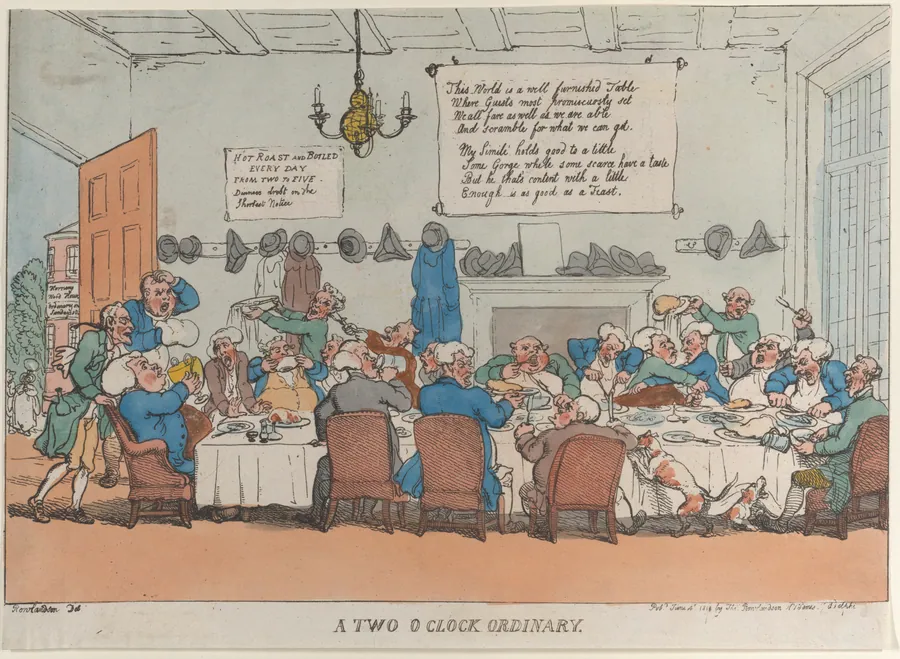 This World is a well furnished Table
Where Guests most promiscuosly set
We all fare as well as we are able
And scramble for what we can get.
My Simile holds good to a tittle
Some Gorge while some scarce have a taste
But he thats content with a little
Enough is as good as a Feast.
HOT ROAST AND BOILED
EVERY DAY
FROM TWO TO FIVE.
Dinners drest on the
Shortest Notice
House
Rowlandson Del
by Tho. Rowlandson
A TWO O CLOCK ORDINARY.